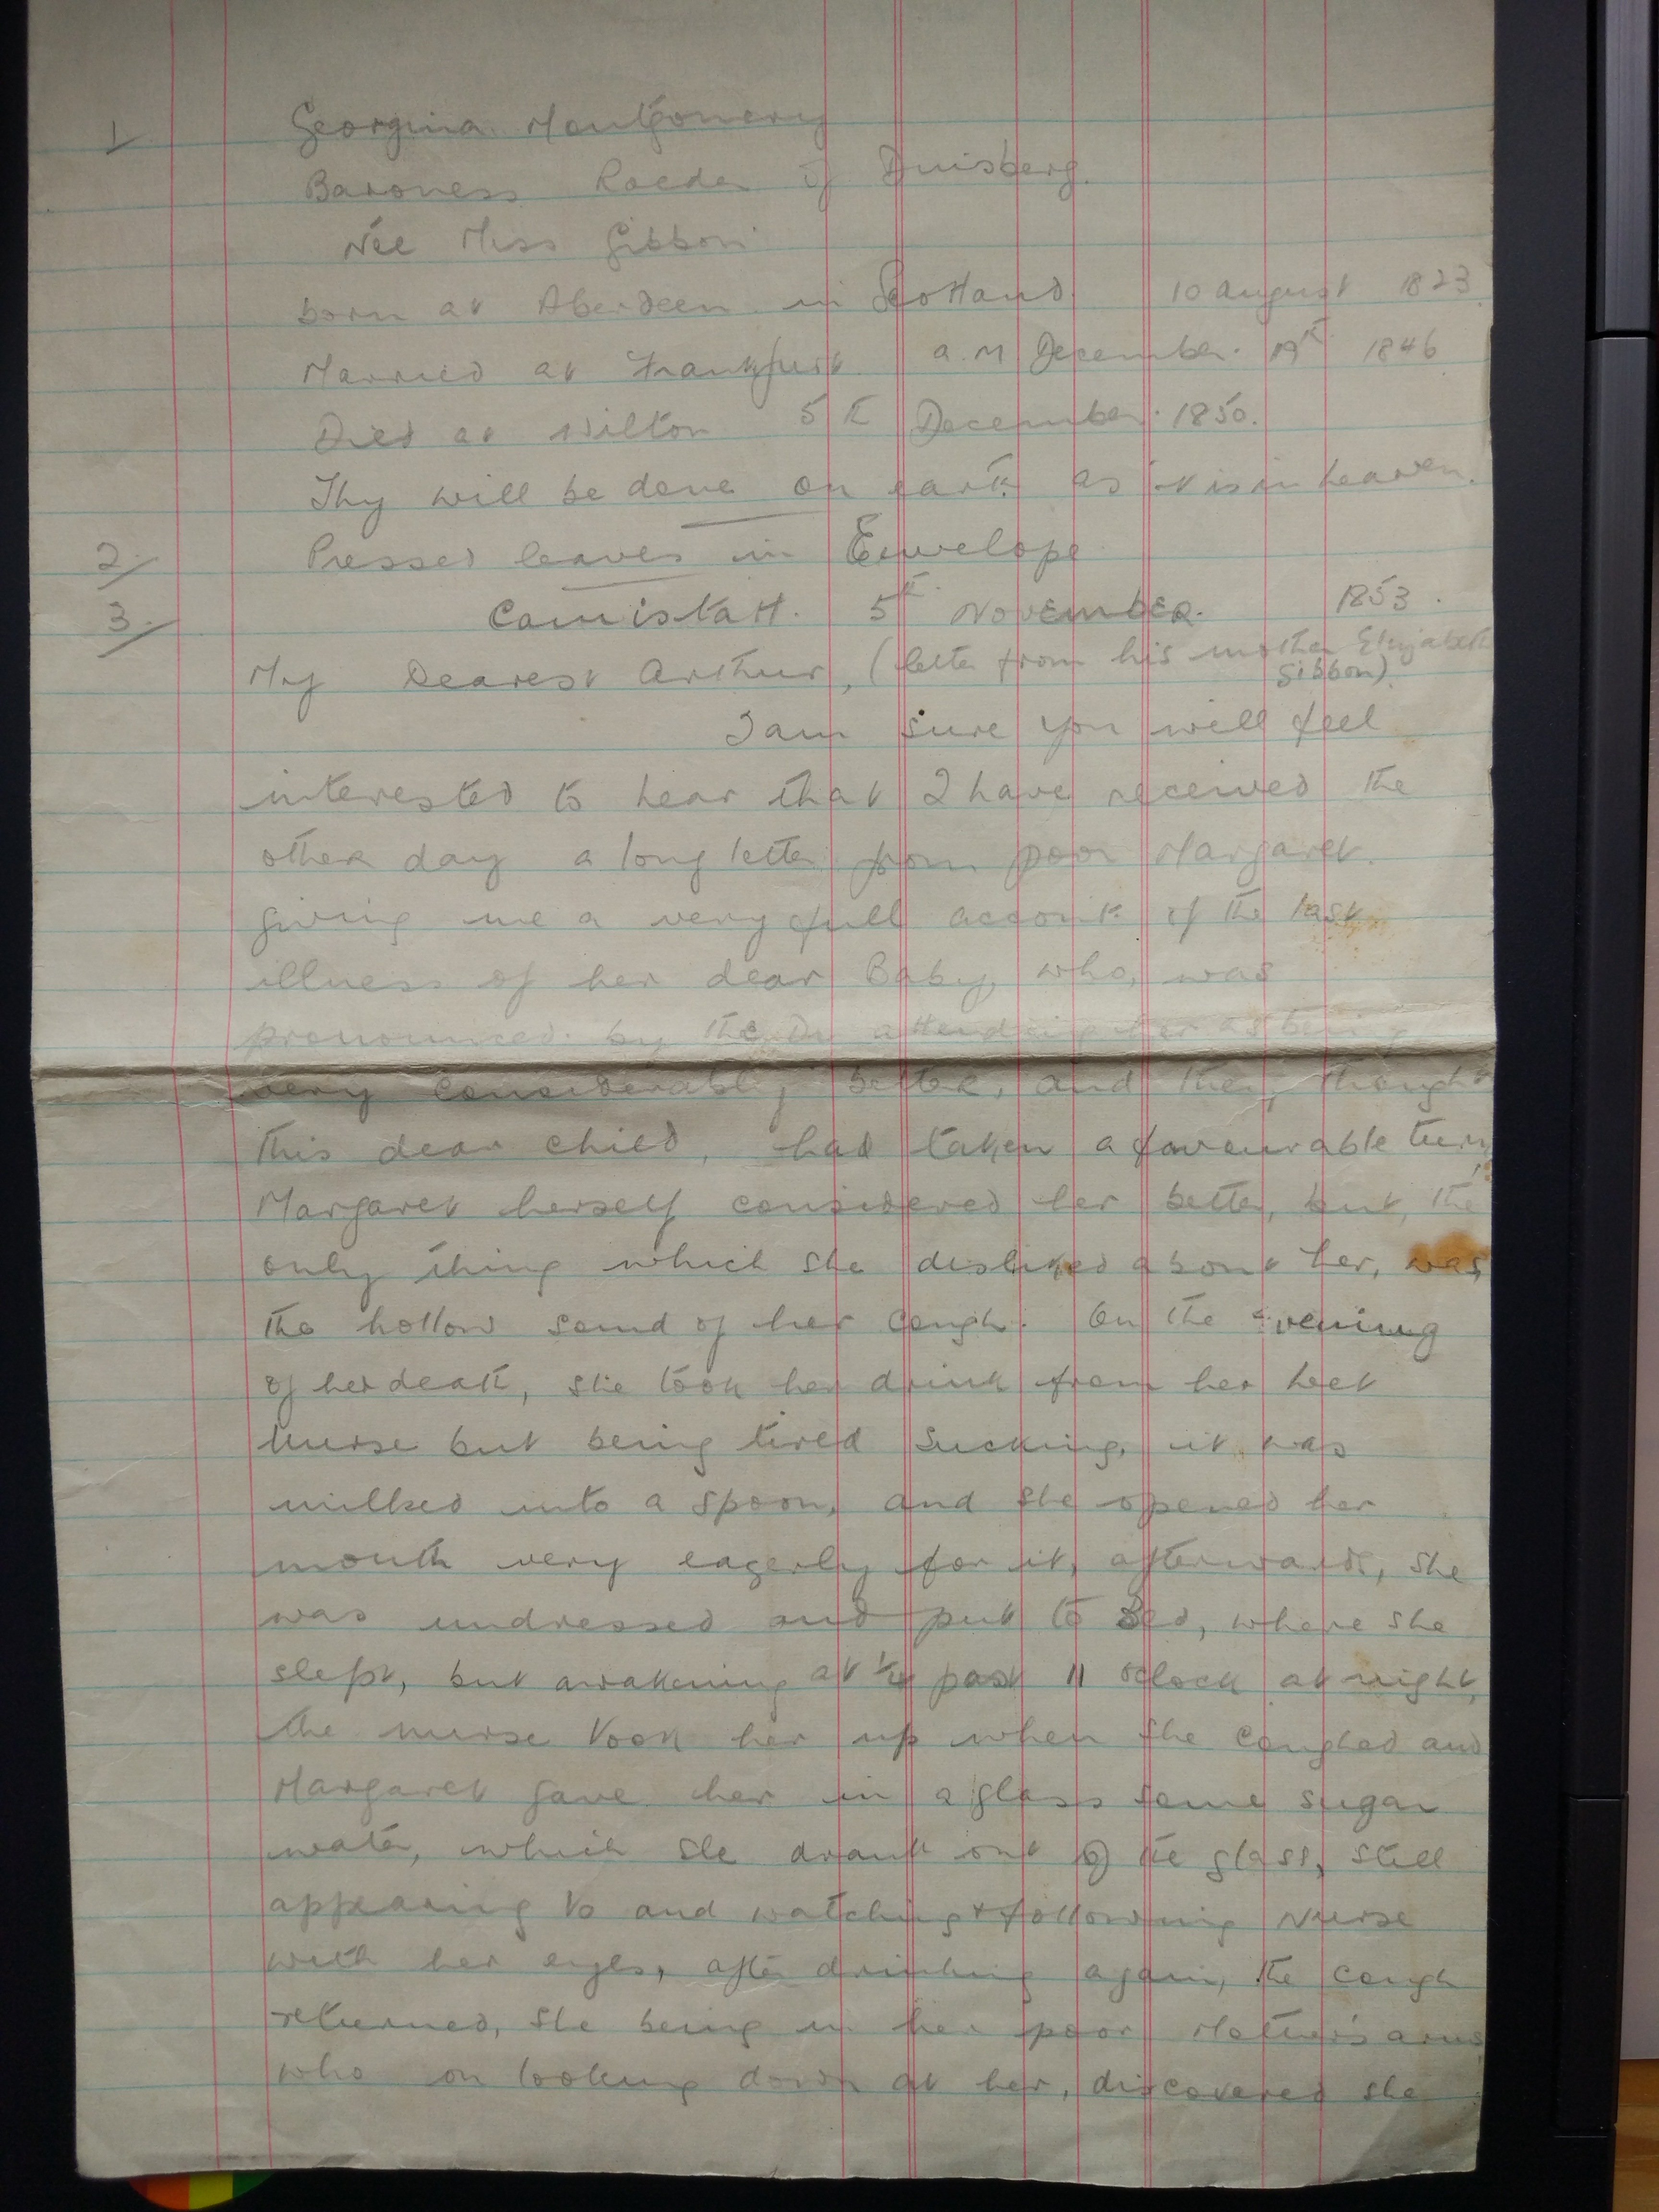 1/ Georgina. Montgomery
Baroness Roeder of Duisberg.
Née Miss Gibbon
born at Aberdeen in Scotland 10 August 1823.
Married at Frankfurt a.M December. 19th 1846
Died at Wilton 5th December. 1850.
Thy will be done on earth as 't is in heaven.
2/ Pressed leaves in Envelope
3/ 5th November. 1853.
My Dearest Arthur, (letter from his mother Elizabeth
Gibbon)
I am sure you will feel
interested to hear that I have received the
other day a long letter from poor Margaret.
giving me a very full account of the last
illness of her dear Baby, who, was
pronounced by the Dr attending her as being
very considerably better, and they thought
this dear child, had taken a favourable turn,
Margaret herself considered her better, but, the
only thing which she disliked about her, was
the hollow sound of her cough. On the evening
of her death, she took her drink from her wet
nurse but being tired sucking, it was
milked into a spoon, and she opened her
mouth very eagerly for it, afterwards, she
was undressed and put to Bed, where she
slept, but awakening at 1/4 past 11 oclock at night,
the nurse took her up when she coughed and
Margaret gave her in a glass some sugar
water, which she drank out of the glass, still
appearing to and watching & following Nurse
with her eyes, after drinking again, the cough
returned, she being in her poor Mother's arms
who on looking down at her, discovered she